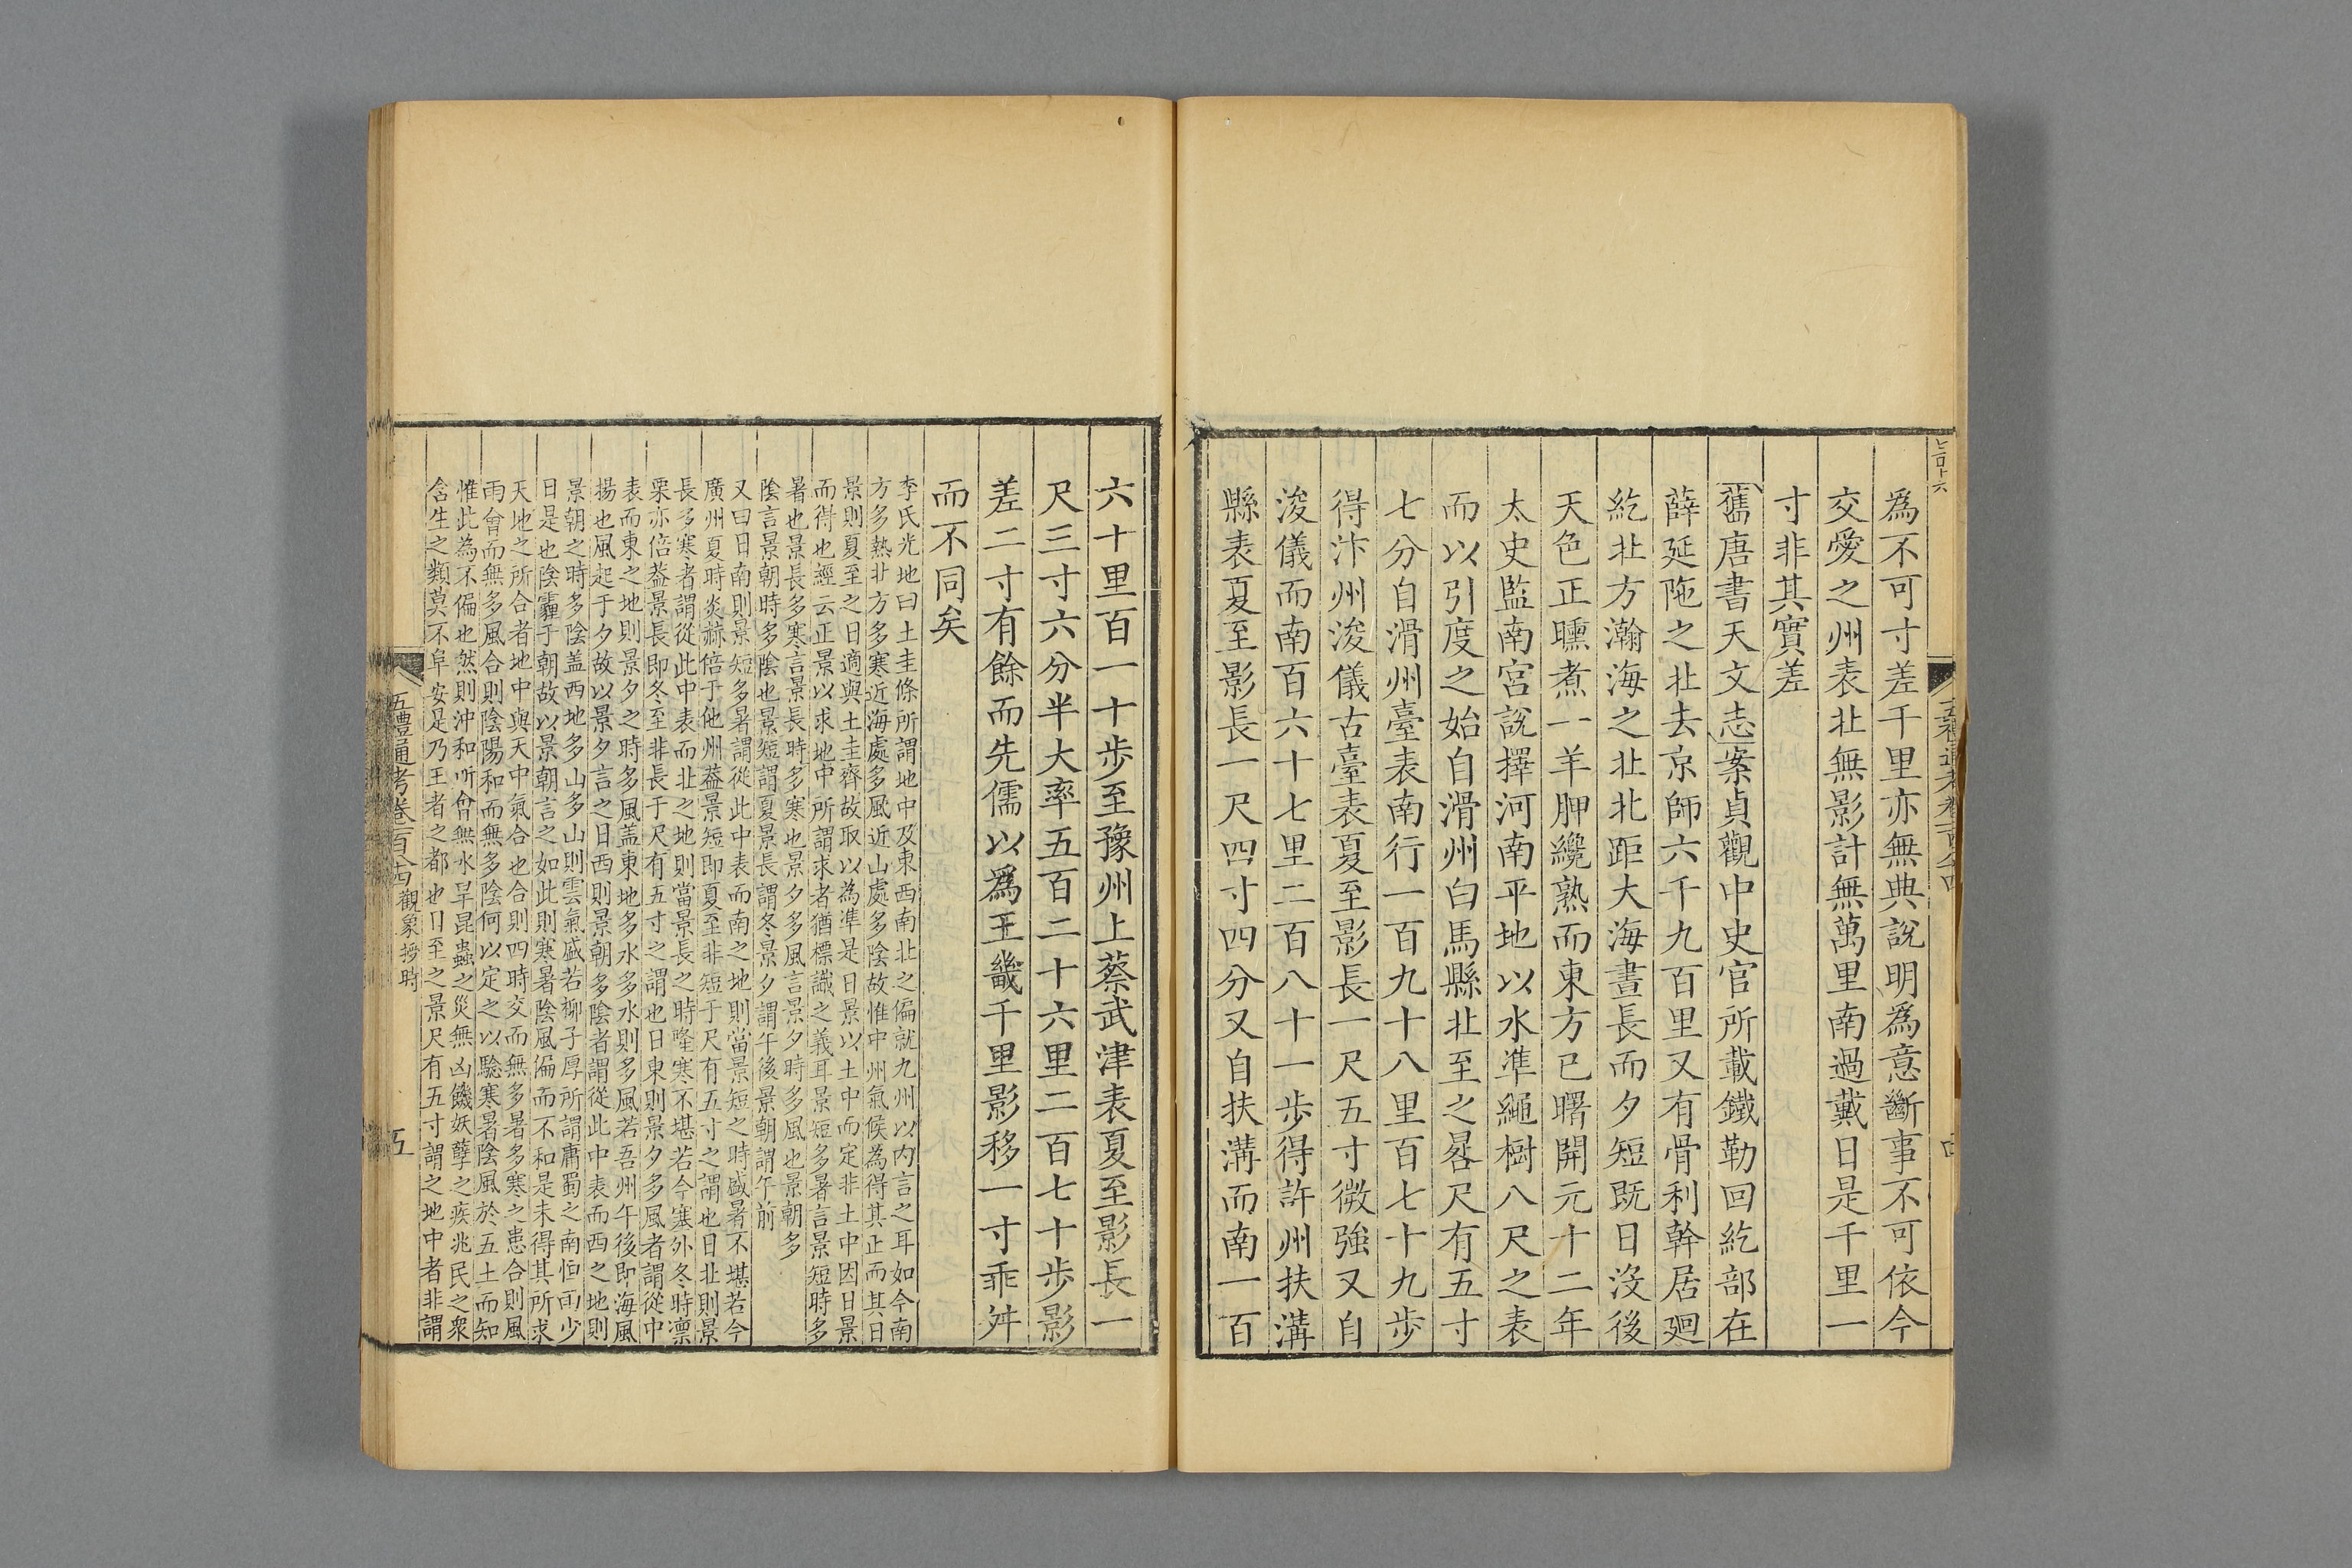 為不可寸差千里亦無典說明為意斷事不可依今
交愛之州表北無影計無萬里南過戴日是千里一
寸非其實差
舊唐書天文志案貞觀中史官所載鐵勒回紇部在
薛延陁之北去京師六千九百里又有骨利幹居廻
紇北方瀚海之北北距大海晝長而夕短既日沒後
天色正曛煮一羊胛纔熟而東方已曙開元十二年
太史監南宮說擇河南平地以水凖繩樹八尺之表
而以引度之始自滑州白馬縣北至之晷尺有五寸
七分自滑州臺表南行一百九十八里百七十九步
得汴州浚儀古臺表夏至影長一尺五寸微強又自
浚儀而南百六十七里二百八十一步得許州扶溝
縣表夏至影長一尺四寸四分又自扶溝而南一百
六十里百一十步至豫州上蔡武津表夏至影長一
尺三寸六分半大率五百二十六里二百七十步影
差二寸有餘而先儒以爲王畿千里影移一寸乖舛
而不同矣
李氏光地曰土圭條所謂地中及東西南北之偏就九州以內言之耳如今南
方多熱北方多寒近海處多風近山處多陰故惟中州氣候為得其正而其日
景則夏至之日適與土圭齊故取以為凖是日景以土中而定非土中因日景
而得也經云正景以求地中所謂求者猶標識之義耳景短多暑言景短時多
暑也景長多寒言景長時多寒也景夕多風言景夕時多風也景朝多
陰言景朝時多陰也景短謂夏景長謂冬景夕謂午後景朝謂午前
又曰日南則景短多暑謂從此中表而南之地則當景短之時盛暑不堪若今
廣州夏時炎赫倍于他州葢景短即夏至非短于尺有五寸之謂也日北則景
長多寒者謂從此中表而北之地則當景長之時隆寒不堪若今塞外冬時凛
栗亦倍葢景長即冬至非長于尺有五寸之謂也日東則景夕多風者謂從中
表而東之地則景夕之時多風盖東地多水多水則多風若吾州午後即海風
揚也風起于夕故以景夕言之日西則景朝多陰者謂從此中表而西之地則
景朝之時多陰盖西地多山多山則雲氣盛若栁子厚所謂庸蜀之南恒雨少
日是也陰霾于朝故以景朝言之如此則寒暑陰風偏而不和是未得其所求
天地之所合者地中與天中氣合也合則四時交而無多暑多寒之患合則風
雨會而無多風合則陰陽和而無多陰何以定之以騐寒暑陰風於五土而知
惟此為不偏也然則沖和所會無水旱昆蟲之災無凶饑妖孽之疾兆民之衆
含生之類莫不阜安是乃王者之都也日至之景尺有五寸謂之地中者非謂
五禮通考卷一百八十四 觀象授時
五